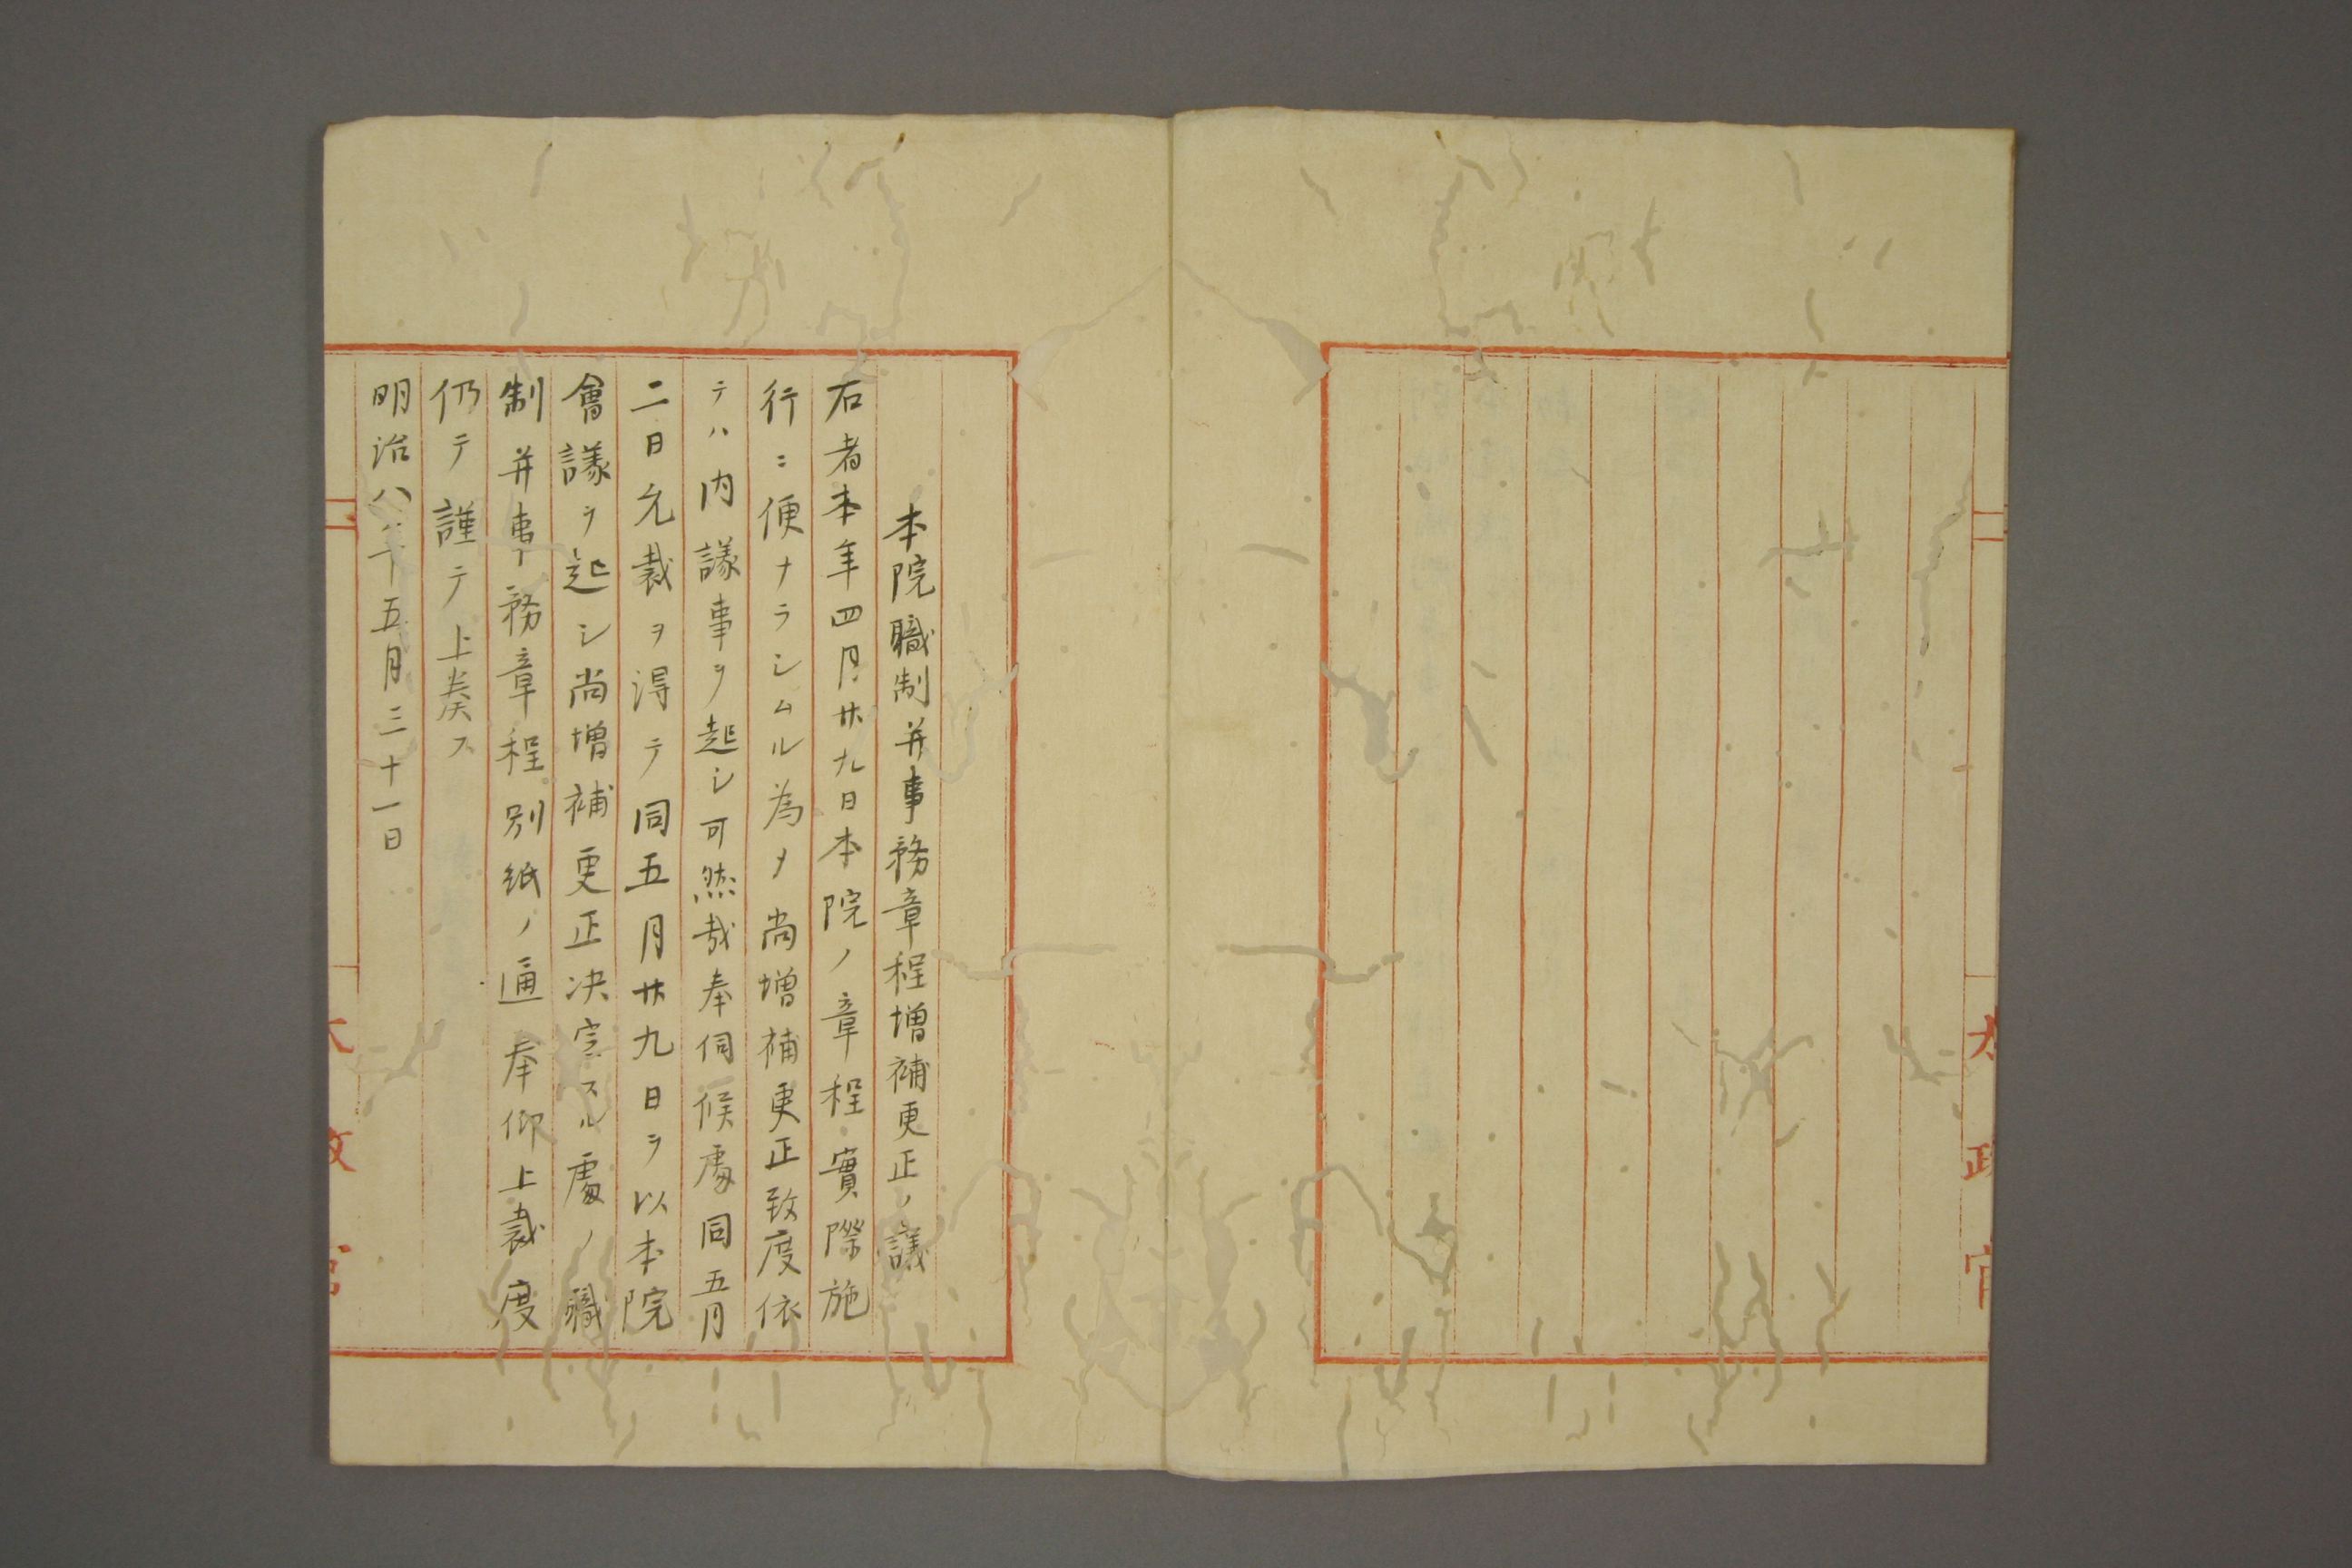 太政官
本院職制并事務章程増補更正ノ議
右者本年四月廿九日本院ノ章程實際施
行ニ便ナラシムル為メ尚増補更正致度依
テハ内議事ヲ起シ可然哉奉伺候處同五月
二日允裁ヲ得テ同五月廿九日ヲ以本院
會議ヲ起シ尚増補更正決定スル處ノ職
制并事務章程別紙ノ通奉仰上裁度
仍テ謹テ上奏ス
明治八年五月三十一日